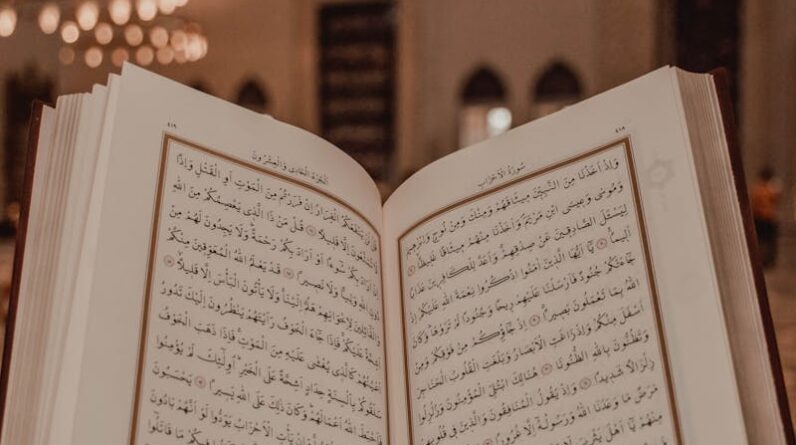 ٤١٨
سُورَةُ الْأَحْزَابِ
وَإِذْ أَخَذْنَا مِنَ النَّبِيِّنَ مِيثَاقَهُمْ وَمِنْكَ وَمِنْ نُوحٍ وَإِبْرٰهِيمَ
وَمُوسَى وَعِيسَى ابْنِ مَرْيَمَ وَأَخَذْنَا مِنْهُمْ مِيثَاقًا غَلِيظًا
لِيَسْئَلَ الصَّادِقِينَ عَنْ صِدْقِهِمْ وَأَعَدَّ لِلْكَافِرِينَ عَذَابًا
أَلِيمًا يَا أَيُّهَا الَّذِينَ اٰمَنُوا اذْكُرُوا نِعْمَةَ اللّٰهِ عَلَيْكُمْ إِذْ
جَاءَتْكُمْ جُنُودٌ فَأَرْسَلْنَا عَلَيْهِمْ رِيحًا وَجُنُودًا لَمْ تَرَوْهَا وَكَانَ
اللّٰهُ بِمَا تَعْمَلُونَ بَصِيرًا إِذْ جَاؤُكُمْ مِنْ فَوْقِكُمْ وَمِنْ
أَسْفَلَ مِنْكُمْ وَإِذْ زَاغَتِ الْأَبْصَارُ وَبَلَغَتِ الْقُلُوبُ الْحَنَاجِرَ
وَتَظُنُّونَ بِاللّٰهِ الظُّنُونَا هُنَالِكَ ابْتُلِيَ الْمُؤْمِنُونَ وَزُلْزِلُوا
زِلْزَالًا شَدِيدًا وَإِذْ يَقُولُ الْمُنَافِقُونَ وَالَّذِينَ فِي قُلُوبِهِمْ
مَرَضٌ مَا وَعَدَنَا اللّٰهُ وَرَسُولُهُ إِلَّا غُرُورًا
مِنْهُمْ يَا أَهْلَ يَثْرِبَ
٤١٩
الْجُزْءُ الْحَادِي وَالْعِشْرُونَ
قُلْ لَنْ يَنْفَعَكُمُ الْفِرَارُ إِنْ فَرَرْتُمْ مِنَ الْمَوْتِ أَوِ الْقَتْلِ وَإِذًا
لَا تُمَتَّعُونَ إِلَّا قَلِيلًا قُلْ مَنْ ذَا الَّذِي يَعْصِمُكُمْ مِنَ اللّٰهِ
إِنْ أَرَادَ بِكُمْ سُوءًا أَوْ أَرَادَ بِكُمْ رَحْمَةً وَلَا يَجِدُونَ لَهُمْ مِنْ
دُونِ اللّٰهِ وَلِيًّا وَلَا نَصِيرًا قَدْ يَعْلَمُ اللّٰهُ الْمُعَوِّقِينَ مِنْكُمْ
وَالْقَائِلِينَ لِإِخْوَانِهِمْ هَلُمَّ إِلَيْنَا وَلَا يَأْتُونَ الْبَأْسَ إِلَّا قَلِيلًا
أَشِحَّةً عَلَيْكُمْ فَإِذَا جَاءَ الْخَوْفُ رَأَيْتَهُمْ يَنْظُرُونَ إِلَيْكَ تَدُورُ
أَعْيُنُهُمْ كَالَّذِي يُغْشَى عَلَيْهِ مِنَ الْمَوْتِ فَإِذَا ذَهَبَ الْخَوْفُ
سَلَقُوكُمْ بِأَلْسِنَةٍ حِدَادٍ أَشِحَّةً عَلَى الْخَيْرِ أُولٰئِكَ لَمْ يُؤْمِنُوا
فَأَحْبَطَ اللّٰهُ أَعْمَالَهُمْ وَكَانَ ذٰلِكَ عَلَى اللّٰهِ يَسِيرًا يَحْسَبُونَ
الْأَحْزَابَ لَمْ يَذْهَبُوا وَإِنْ يَأْتِ الْأَحْزَابُ يَوَدُّوا لَوْ أَنَّهُمْ بَادُونَ
مَا قَاتَلُوا